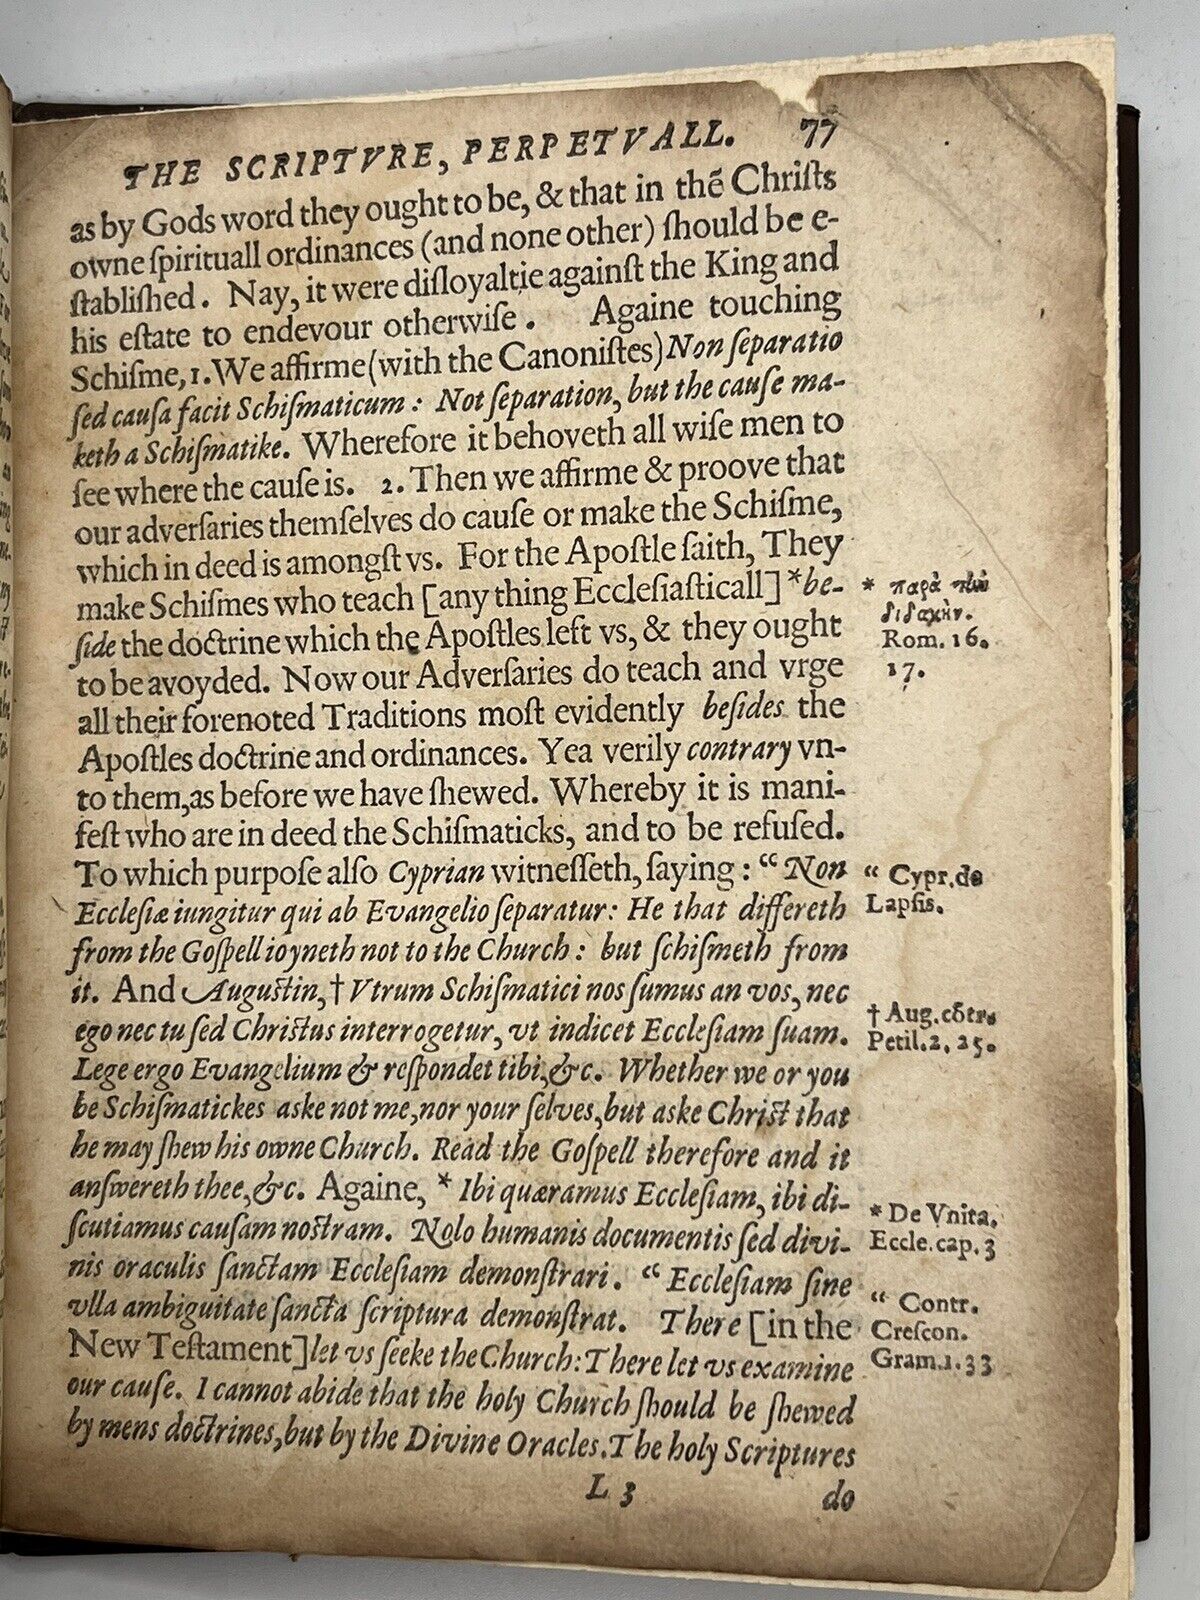 THE SCRIPTVRE, PERPETVALL. 77
as by Gods word they ought to be, & that in thẽ Chriſts
owne ſpirituall ordinances (and none other) ſhould be e-
ſtabliſhed. Nay, it were diſloyaltie againſt the King and
his eſtate to endevour otherwiſe. Againe touching
Schiſme, 1. We affirme (with the Canoniſtes) Non ſeparatio
ſed cauſa facit Schiſmaticum: Not ſeparation, but the cauſe ma-
keth a Schiſmatike. Wherefore it behoveth all wiſe men to
ſee where the cauſe is. 2. Then we affirme & proove that
our adverſaries themſelves do cauſe or make the Schiſme,
which in deed is amongſt vs. For the Apoſtle ſaith, They
make Schiſmes who teach [any thing Eccleſiaſticall] *be-
ſide the doctrine which the Apoſtles left vs, & they ought
to be avoyded. Now our Adverſaries do teach and vrge
all their forenoted Traditions moſt evidently beſides the
Apoſtles doctrine and ordinances. Yea verily contrary vn-
to them, as before we have ſhewed. Whereby it is mani-
feſt who are in deed the Schiſmaticks, and to be refuſed.
To which purpoſe alſo Cyprian witneſſeth, ſaying: “ Non
Eccleſiæ iungitur qui ab Evangelio ſeparatur: He that differeth
from the Goſpell ioyneth not to the Church: but ſchiſmeth from
it. And Auguſtin, † Vtrum Schiſmatici nos ſumus an vos, nec
ego nec tu ſed Chriſtus interrogetur, vt indicet Eccleſiam ſuam.
Lege ergo Evangelium & reſpondet tibi, &c. Whether we or you
be Schiſmatickes aske not me, nor your ſelves, but aske Chriſt that
he may ſhew his owne Church. Read the Goſpell therefore and it
anſwereth thee, &c. Againe, * Ibi quæramus Eccleſiam, ibi di-
ſcutiamus cauſam noſtram. Nolo humanis documentis ſed divi-
nis oraculis ſanctam Eccleſiam demonſtrari. “ Eccleſiam ſine
vlla ambiguitate ſancta ſcriptura demonſtrat. There [in the
New Teſtament] let vs ſeeke the Church: There let vs examine
our cauſe. I cannot abide that the holy Church ſhould be ſhewed
by mens doctrines, but by the Divine Oracles. The holy Scriptures
L 3 do
* παρὰ τὴν
διδαχὴν.
Rom. 16.
17.
“ Cypr. de
Lapſis.
† Aug. cõtra
Petil. 2. 25.
* De Vnita.
Eccle. cap. 3
“ Contr.
Creſcon.
Gram. 1. 33